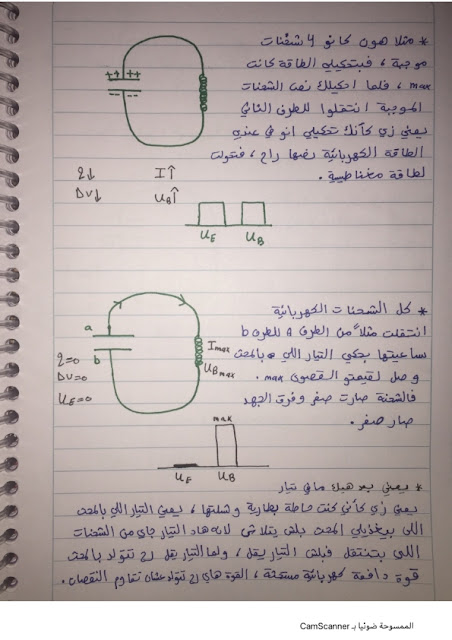 * مثلا هون كانو 4 شحنات
موجبة ، فبتحكيلي الطاقة كانت
max ، فلما احكيلك نص الشحنات
الموجبة انتقلوا للطرف الثاني
يعني زي كأنك تحكيلي انو في عندي
الطاقة الكهربائية نصها راح ، فتحولت
لطاقة مغناطيسية .
++ ++
-- --
q↓ I↑
ΔV↓ U_B↑
U_E U_B
* كل الشحنات الكهربائية
انتقلت مثلاً من الطرف a للطرف b
ساعيتها بحكي التيار اللي بالمحث
وصل لقيمتو القصوى max .
فالشحنة صارت صفر وفرق الجهد
صار صفر .
a
b
q=0
ΔV=0
U_E=0
I max
U_B max
max
U_E U_B
* يعني بعد هيك ما في تيار
يعني زي كأني كنت حاطة بطارية وشلتها ، يعني التيار اللي بالمحث
اللي بيغذيلي المحث بلش يتلاشى لانه هاد التيار جاي من الشحنات
اللي بتنتقل فبلش التيار يقل ، ولما التيار يقل رح تتولد بالمحث
قوة دافعة كهربائية مستحثة ، القوة هاي رح تتولد عشان تقاوم النقصان .
الممسوحة ضوئيا بـ CamScanner